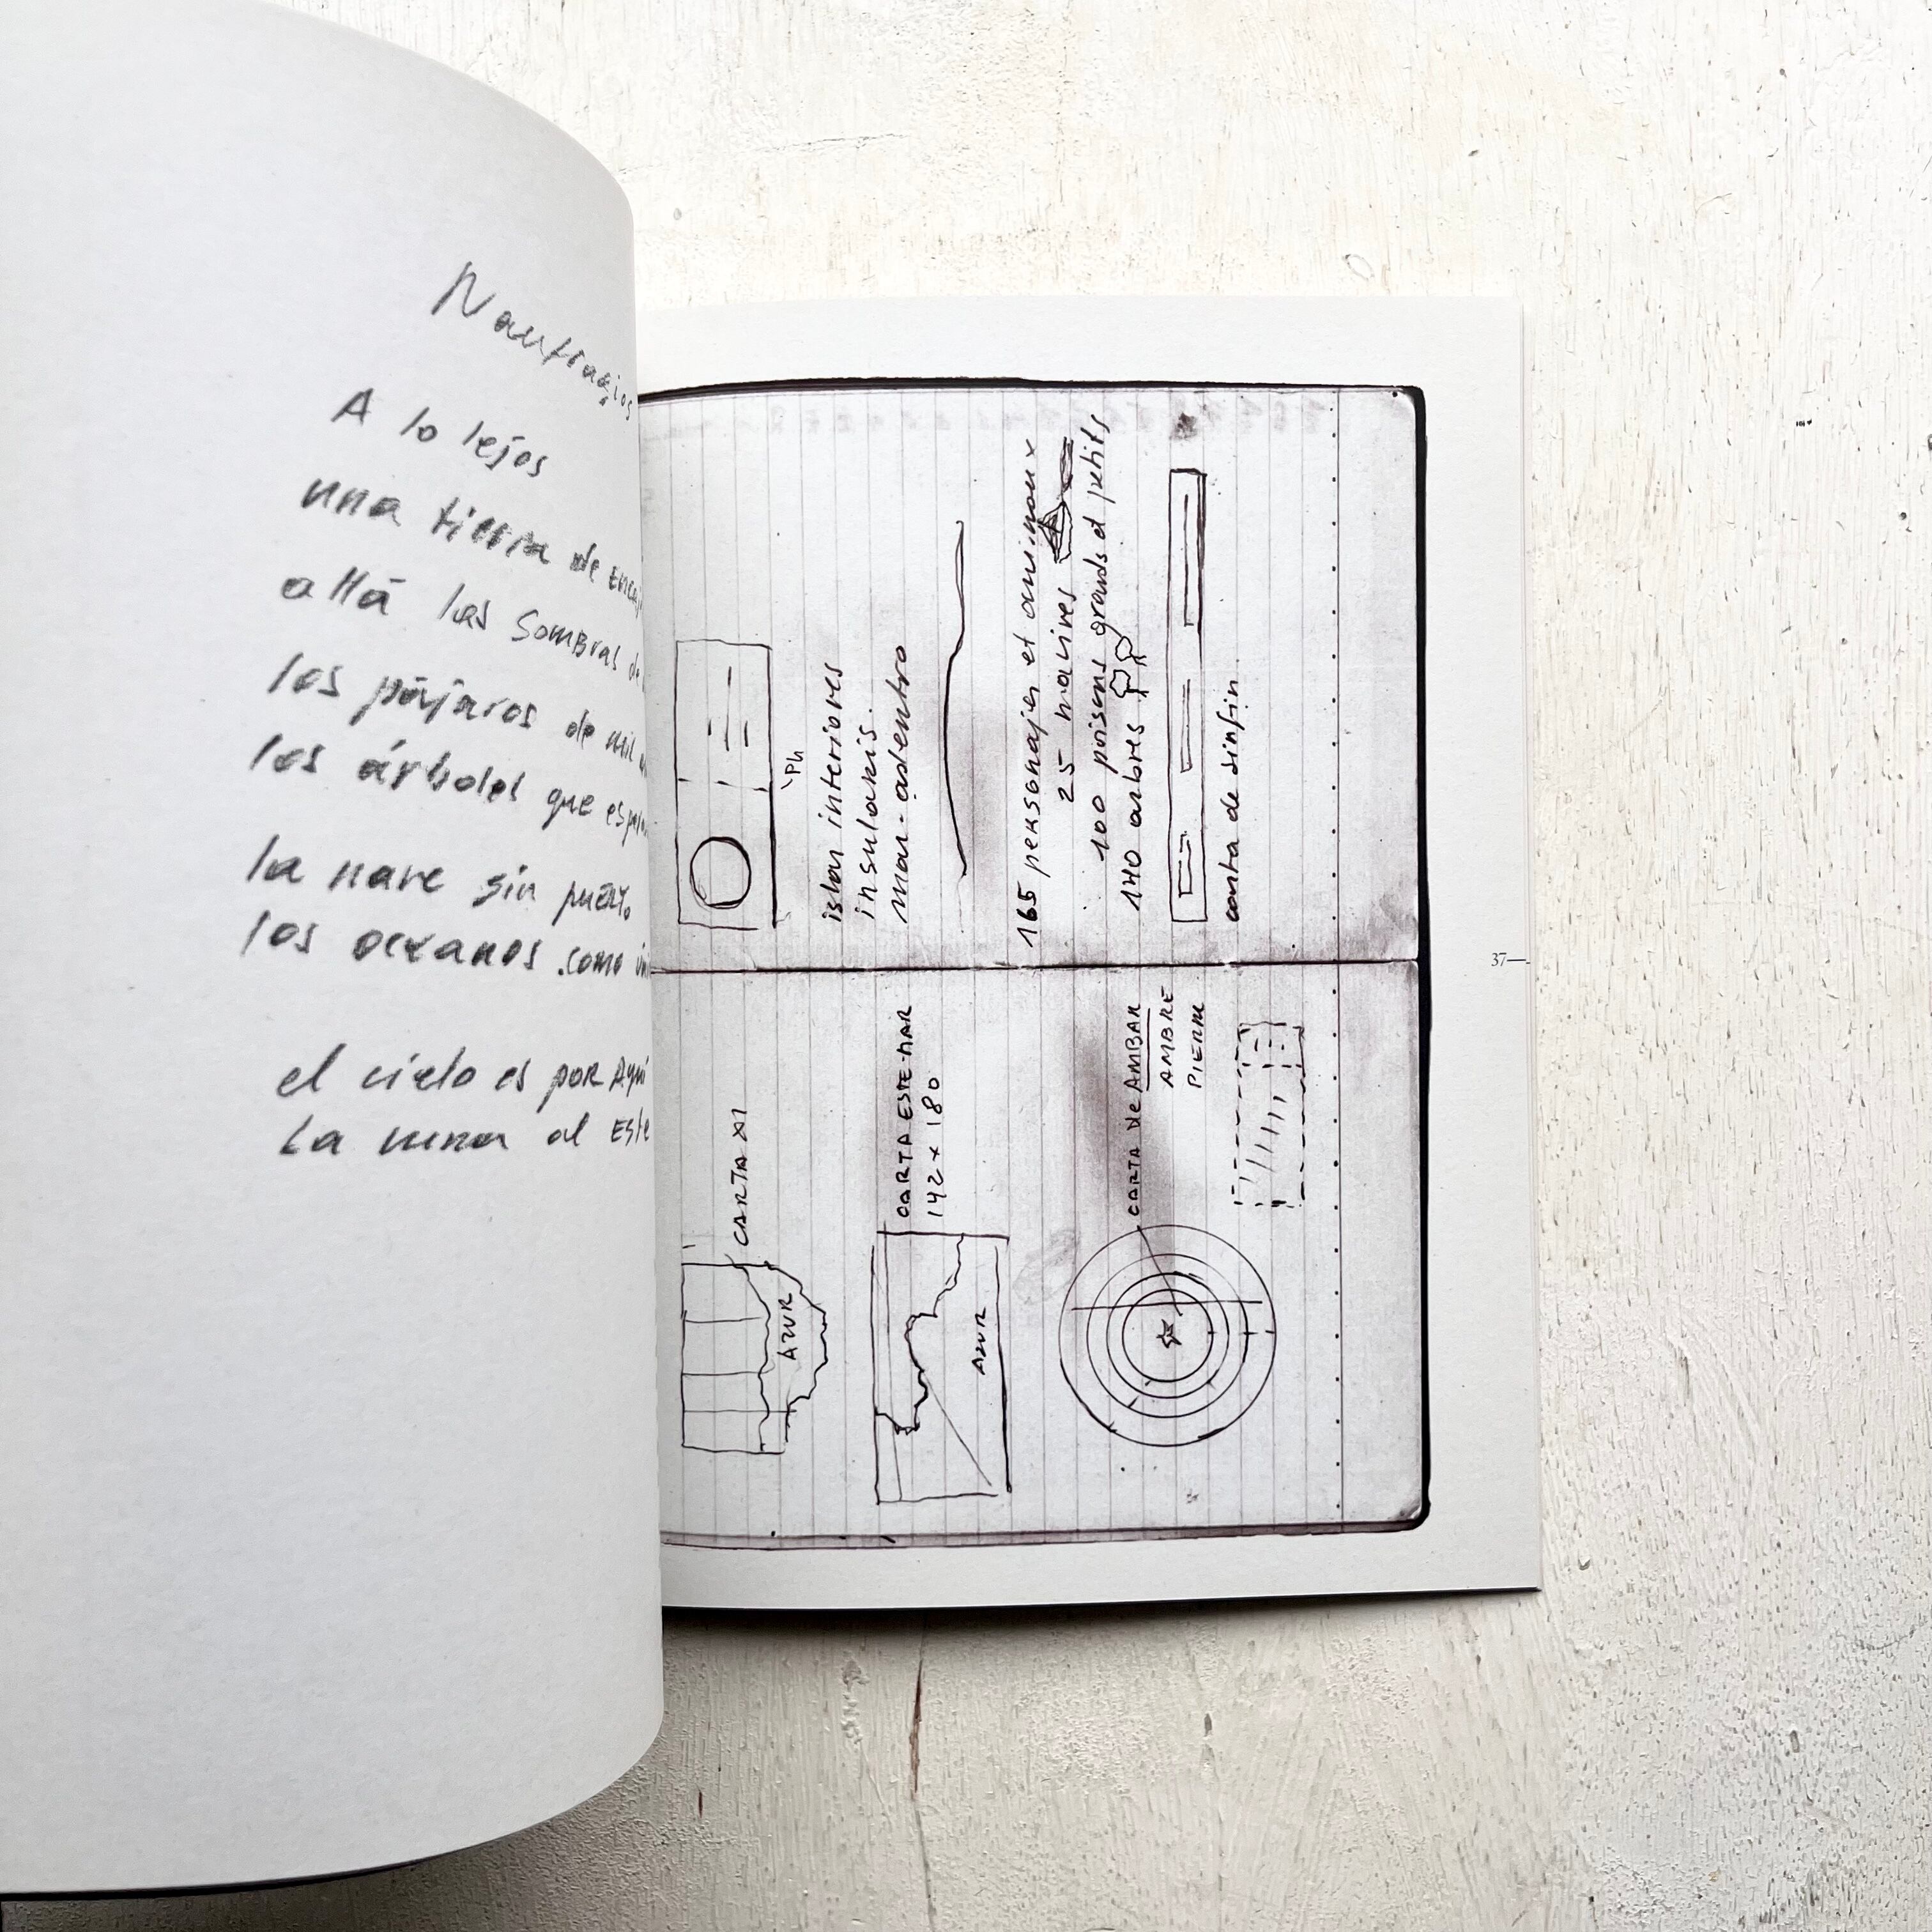 Naufragios
A lo lejos
una tierra de
allá las sombras
los pájaros de mil
los árboles que
la nave sin puerto
los oceanos como
el cielo es por Aquí
La luna al Este
CARTA XI
AZUR
CARTA ESTE-MAR
142 x 180
AZUR
CARTA de AMBAR
AMBRE
PIERRE
islas interiores
insularis.
mar-adentro
165 personajes et animaux
25 navires
100 poisons grands et petits
140 arbres
carta de sinfin
37